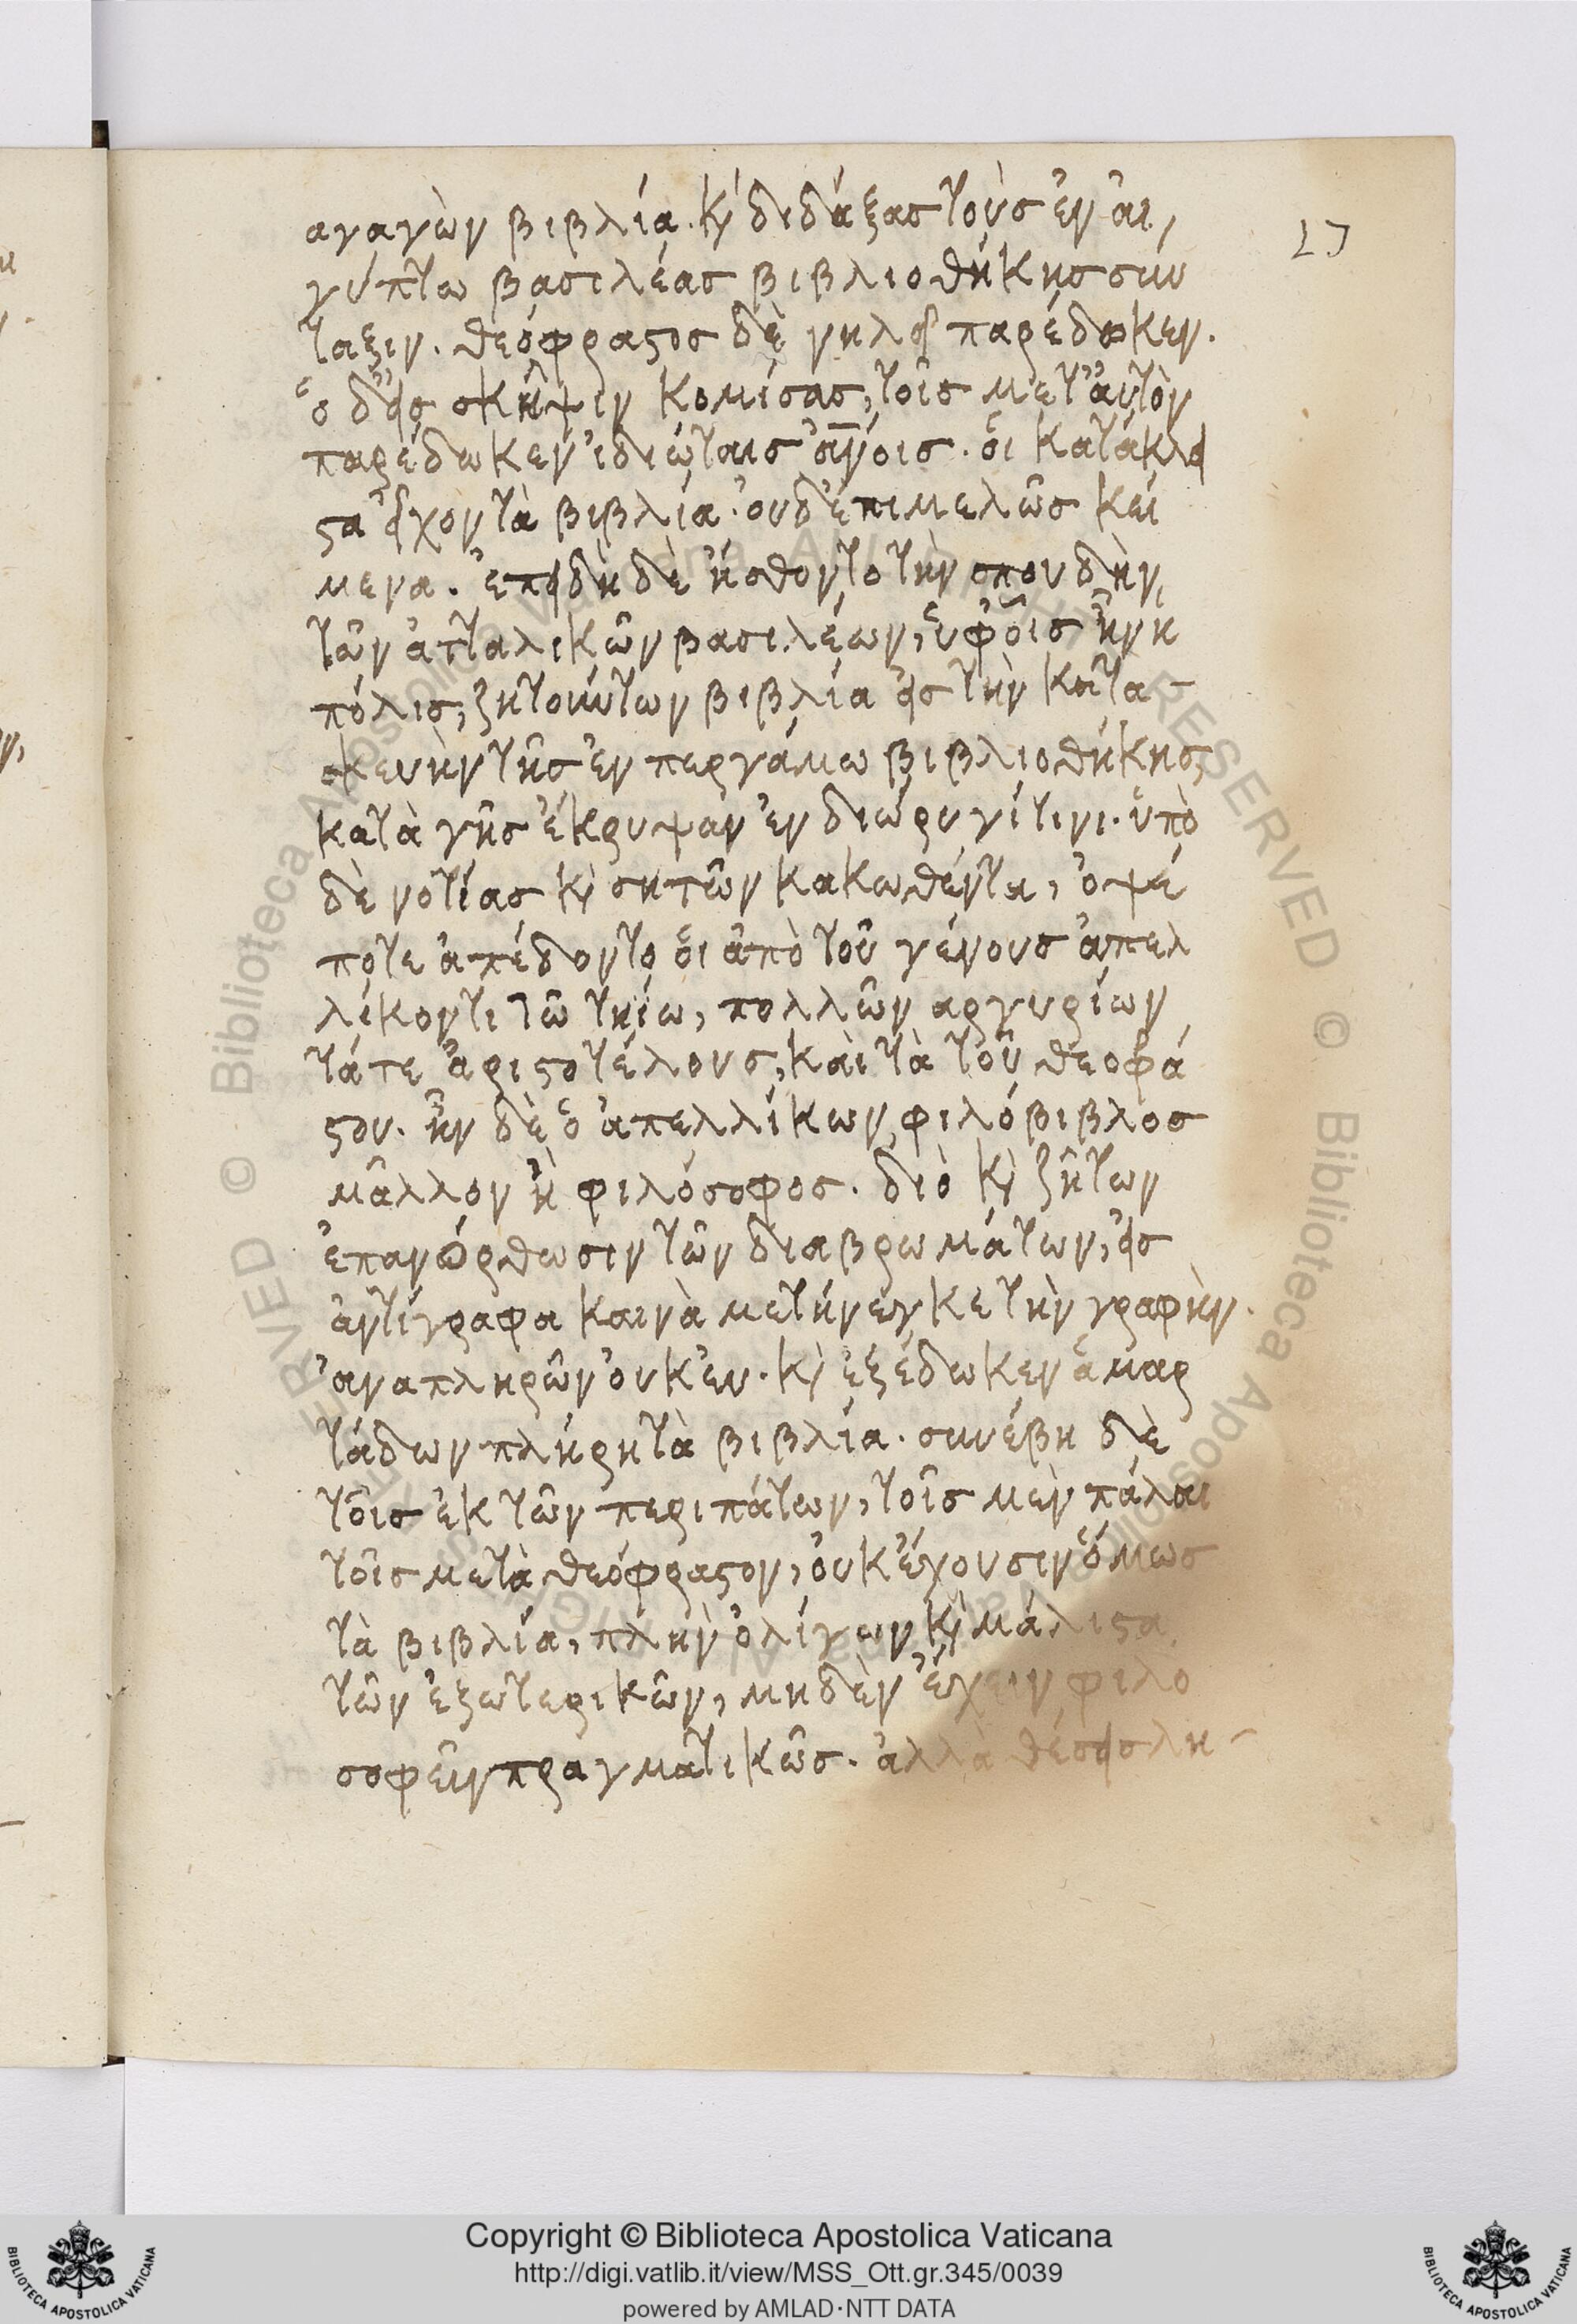 αγαγὼν βιβλία. κỳ διδάξας τοὺς ἐν ἀι,
γύπτω βασιλέας βιβλιοθήκης συν
ταξιν. θεόφραϛος δὲ νηλεῖ παρέδωκεν.
ὁ δ' εἰς σκῆψιν κομίσας, τοῖς μετ' ἀυτὸν
παρέδωκεν ἰδιώταις ἀν̅οις. ὁι κατάκλει
ϛα εἶχον τὰ βιβλία. ὀυδ' ἐπιμελῶς κεί
μενα. ἐπειδὴ δὲ ἤσθοντο τὴν σπουδὴν
τῶν ἀτταλικῶν βασιλέων, ὑφ' οἷς ἦν η
πόλις, ζητούντων βιβλία εἰς τὴν κατα-
σκευὴν τῆς ἐν περγάμω βιβλιοθήκης
κατὰ γῆς ἔκρυψαν ἐν διώρυγί τινι. ὑπὸ
δὲ νοτίας κỳ σητῶν κακωθέντα, ὀψέ
ποτε ἀπέδοντο ὁι ἀπὸ τοῦ γένους ἀπελ
λίκοντι τῶ τηίω, πολλῶν αργυρίων
τά τε ἀριϛοτέλους, καὶ τὰ τοῦ θεοφρά
ϛου. ἦν δὲ ὁ ἀπελλίκων φιλόβιβλος
μᾶλλον ἢ φιλόσοφος. διὸ κỳ ζῆτων
ἐπανόρθωσιν τῶν διαβρωμάτων, εἰς
ἀντίγραφα καινὰ μετήνεγκε τὴν γραφὴν.
ἀναπληρῶν ὀυκ ἐυ. κỳ ἐξέδωκεν ἁμαρ
τάδων πλήρη τὰ βιβλία. συνέβη δὲ
τοῖς ἐκ τῶν περιπάτων, τοῖς μὲν πάλαι
τοῖς μετὰ θεόφραϛον, ὀυκ ἔχουσιν ὅμως
τὰ βιβλία, πλὴν ὀλίγων κỳ μάλιϛα
τῶν ἐξωτερικῶν, μηδὲν ἔχειν φιλο
σοφεῖν πραγματικῶς. ἀλλὰ θέσεις λη-
Copyright © Biblioteca Apostolica Vaticana
http://digi.vatlib.it/view/MSS_Ott.gr.345/0039
powered by AMLAD·NTT DATA